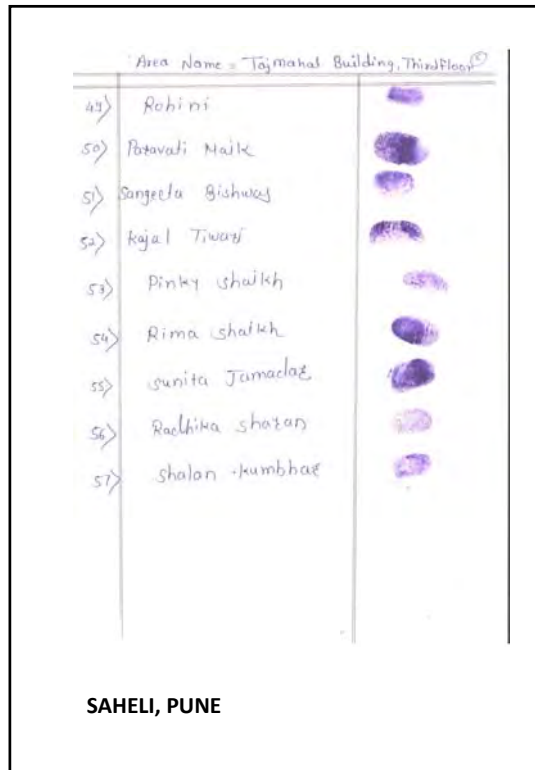 Area Name = Tajmahal Building, Third Floor
49) Rohini
50) Paravati Naik
51) Sangeeta Bishwas
52) Kajal Tiwari
53) Pinky Shaikh
54) Rima Shaikh
55) Sunita Jamadar
56) Radhika Sharan
57) Shalan Kumbhar
SAHELI, PUNE